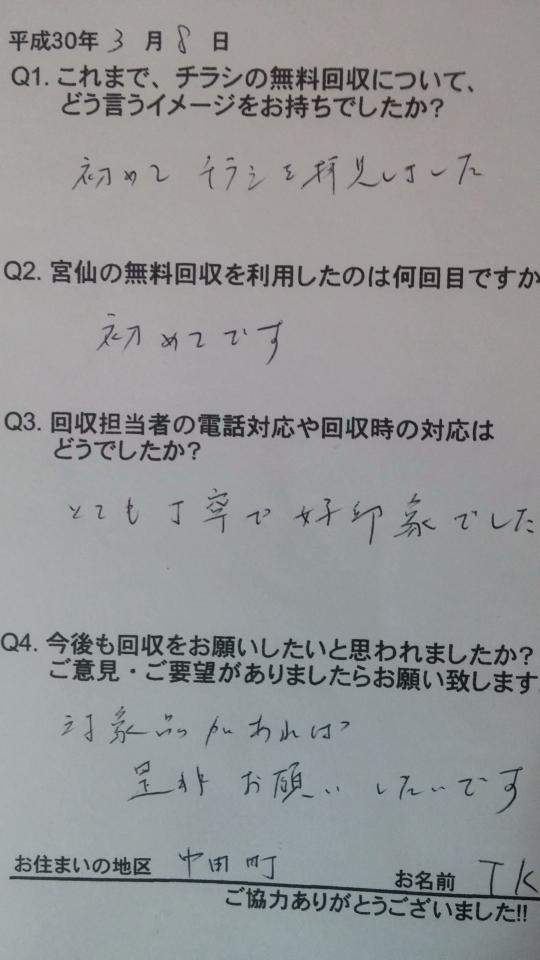 平成30年 3 月 8 日
Q1. これまで、チラシの無料回収について、
どう言うイメージをお持ちでしたか?
初めて チラシを拝見しました
Q2. 宮仙の無料回収を利用したのは何回目ですか
初めてです
Q3. 回収担当者の電話対応や回収時の対応は
どうでしたか?
とても丁寧で好印象でした
Q4. 今後も回収をお願いしたいと思われましたか?
ご意見・ご要望がありましたらお願い致します
対象品があれば
是非お願いしたいです
お住まいの地区 中田町 お名前 TK
ご協力ありがとうございました!!